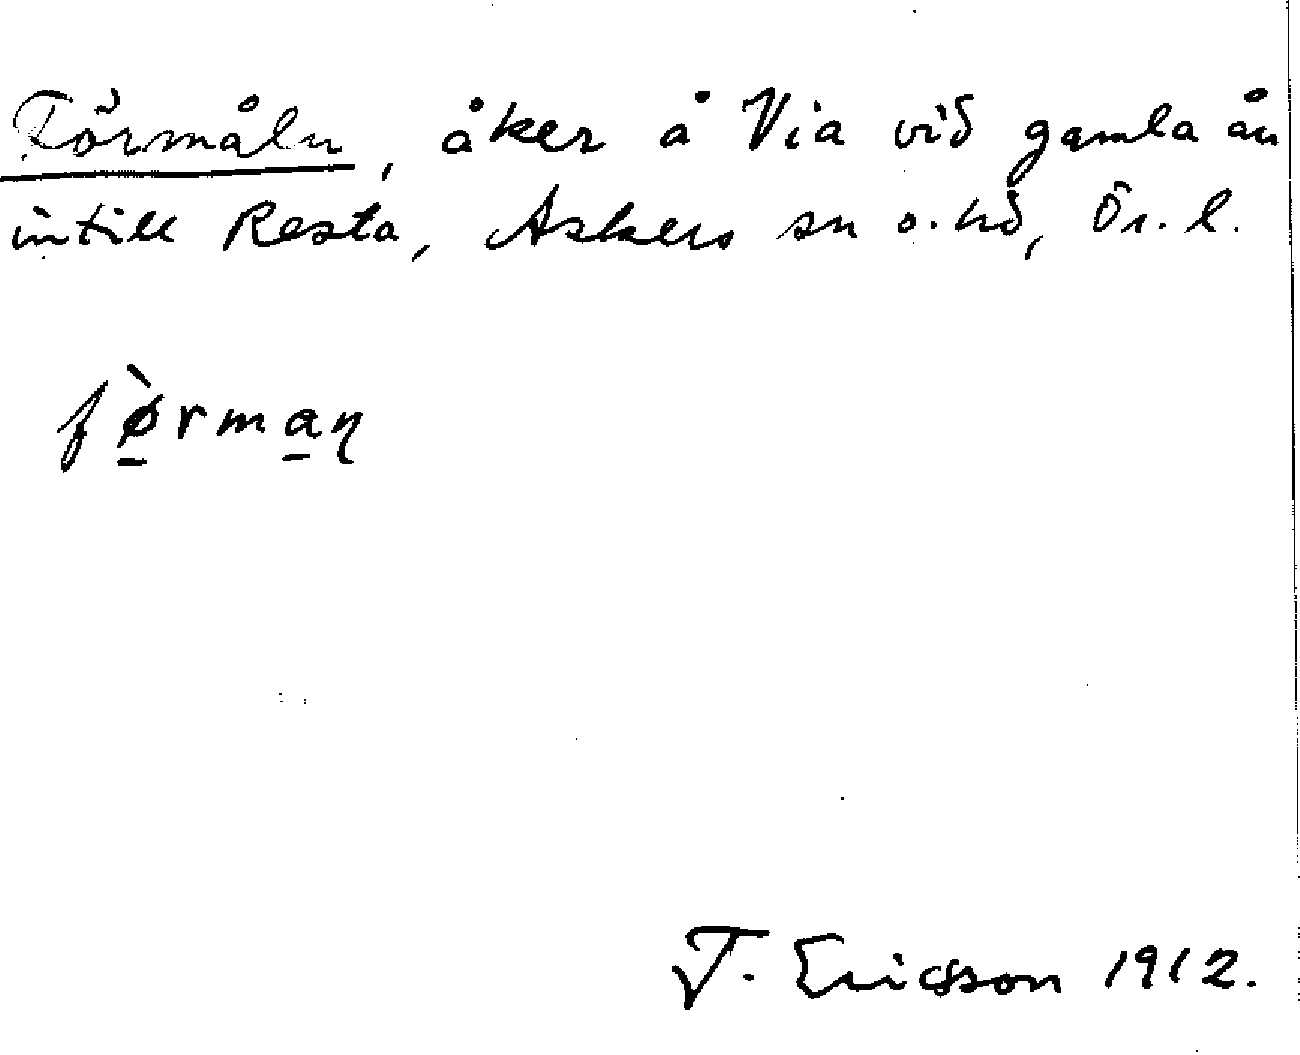 Förmåln, åker å Via vid gamla ån
intill Resta, Askers sn o. hd, Ör. l.
fø̠̀rma̠ɳ
T. Ericsson 1912.